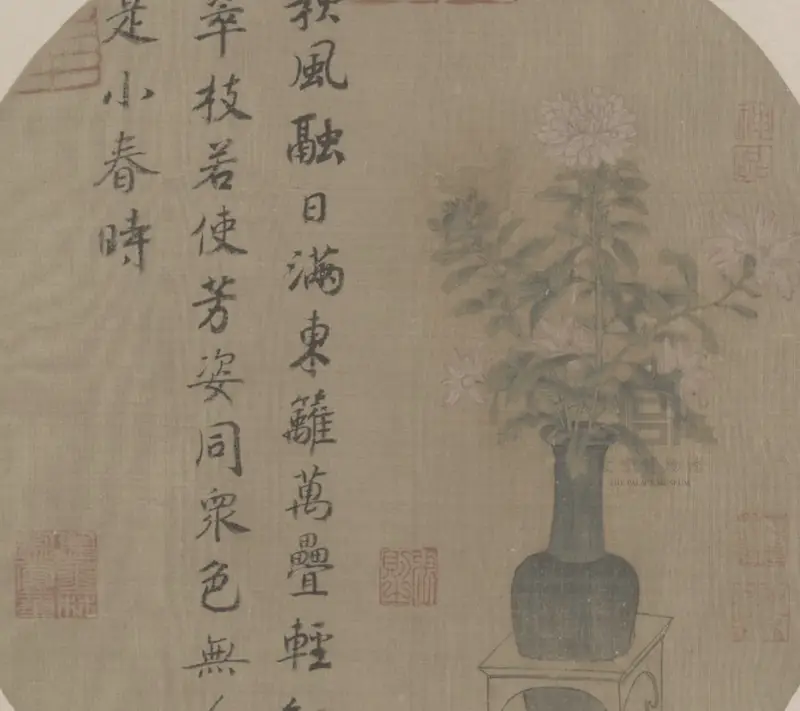 秋風融日滿東籬萬疊輕
翠枝若使芳姿同眾色無
是小春時
THE PALACE MUSEUM